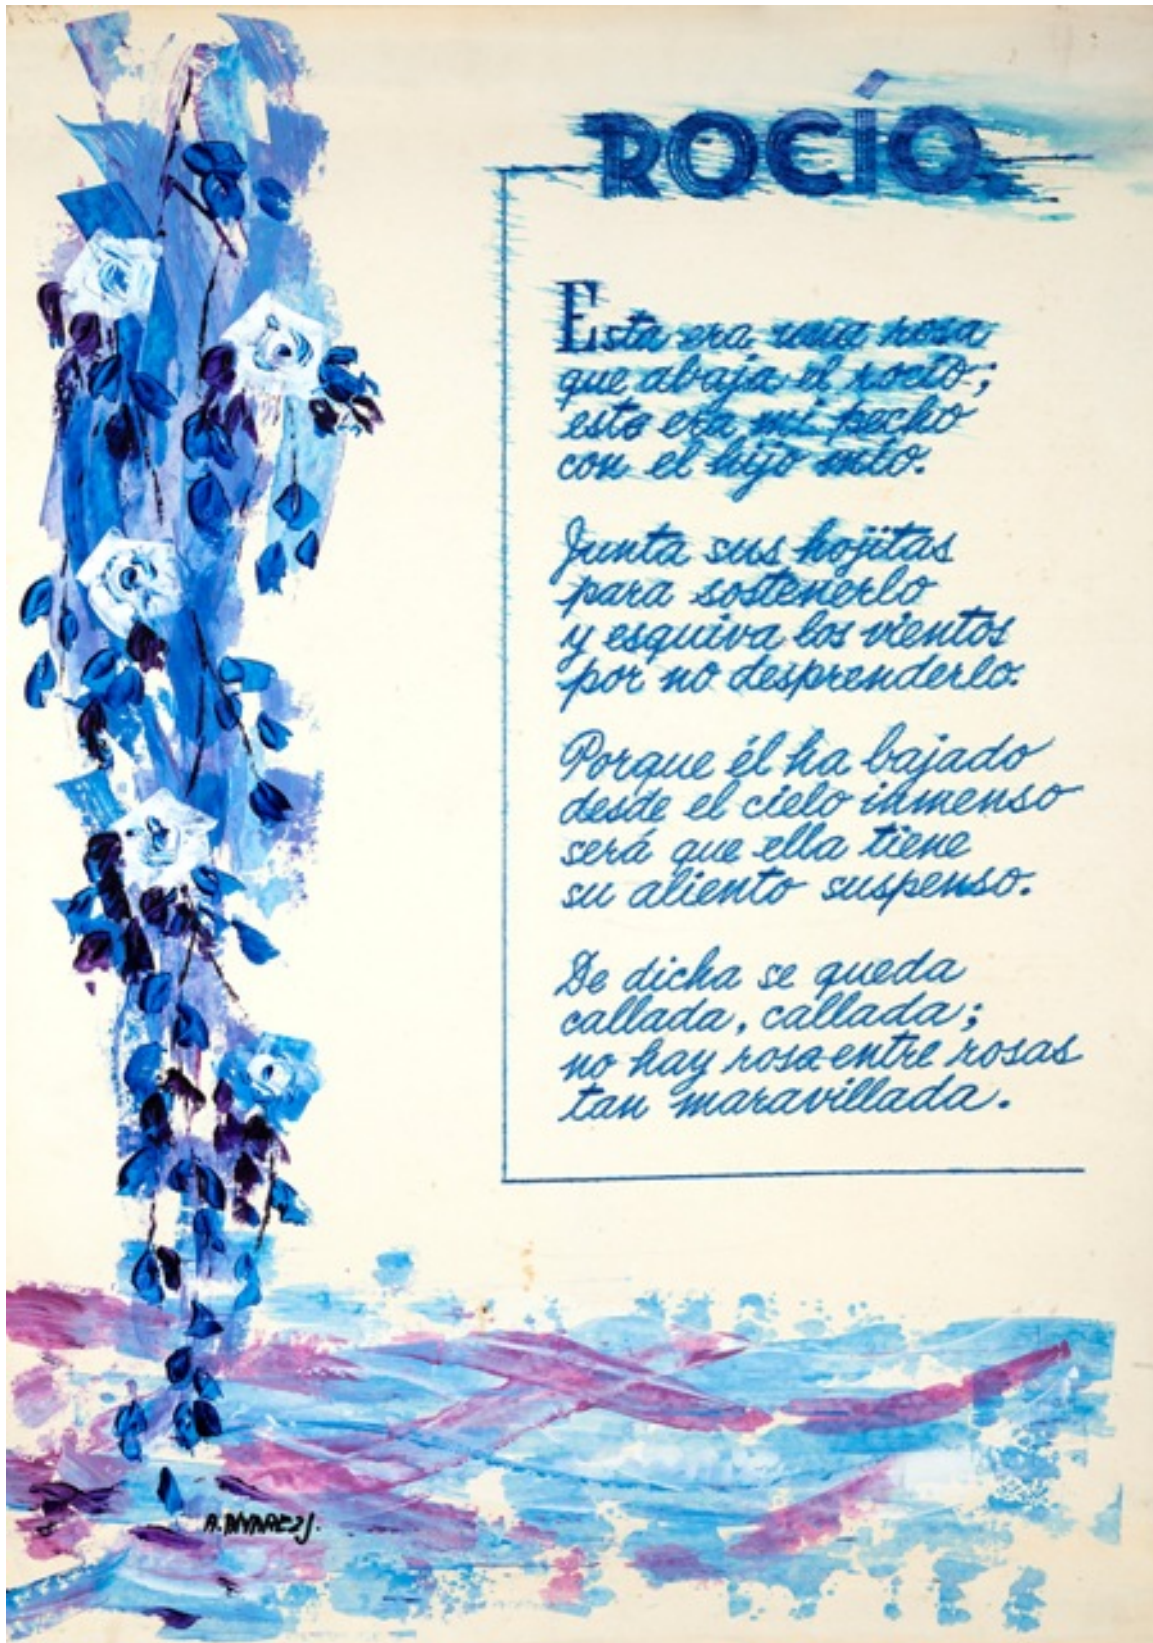 ROCÍO.
Esta era una rosa
que abaja el rocío;
este era mi pecho
con el hijo mío.
Junta sus hojitas
para sostenerlo
y esquiva los vientos
por no desprenderlo.
Porque él ha bajado
desde el cielo inmenso
será que ella tiene
su aliento suspenso.
De dicha se queda
callada, callada;
no hay rosa entre rosas
tan maravillada.
A. ALVAREZ J.